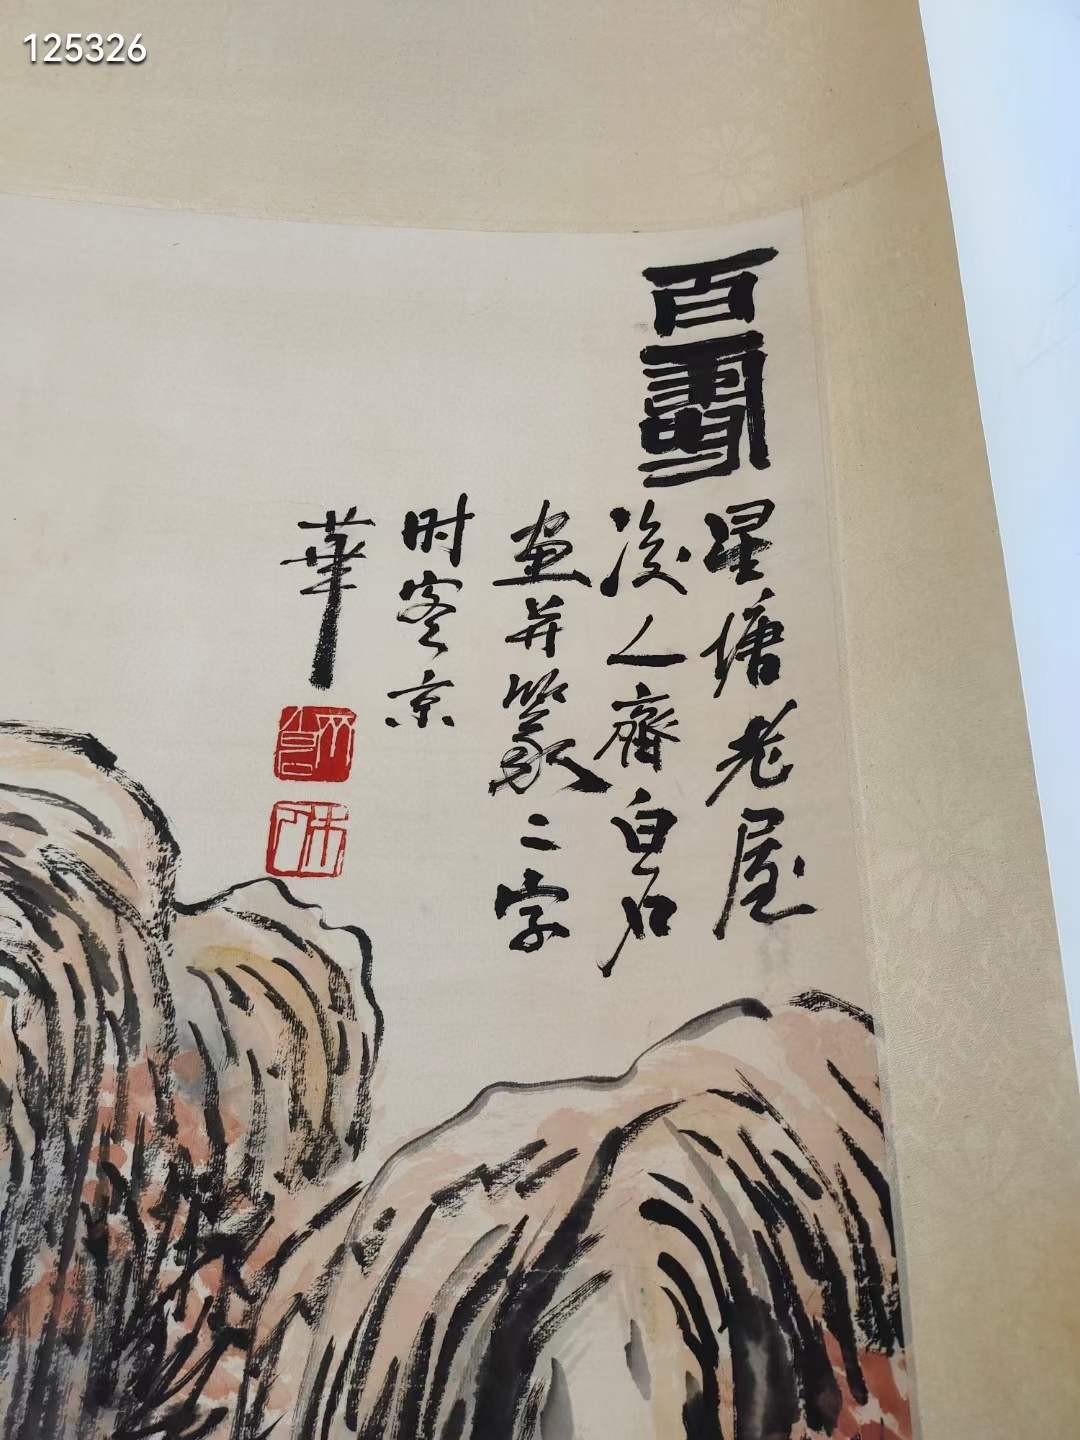 125326
百
星塘老屋
後人齊白石
画并篆二字
时客京
華